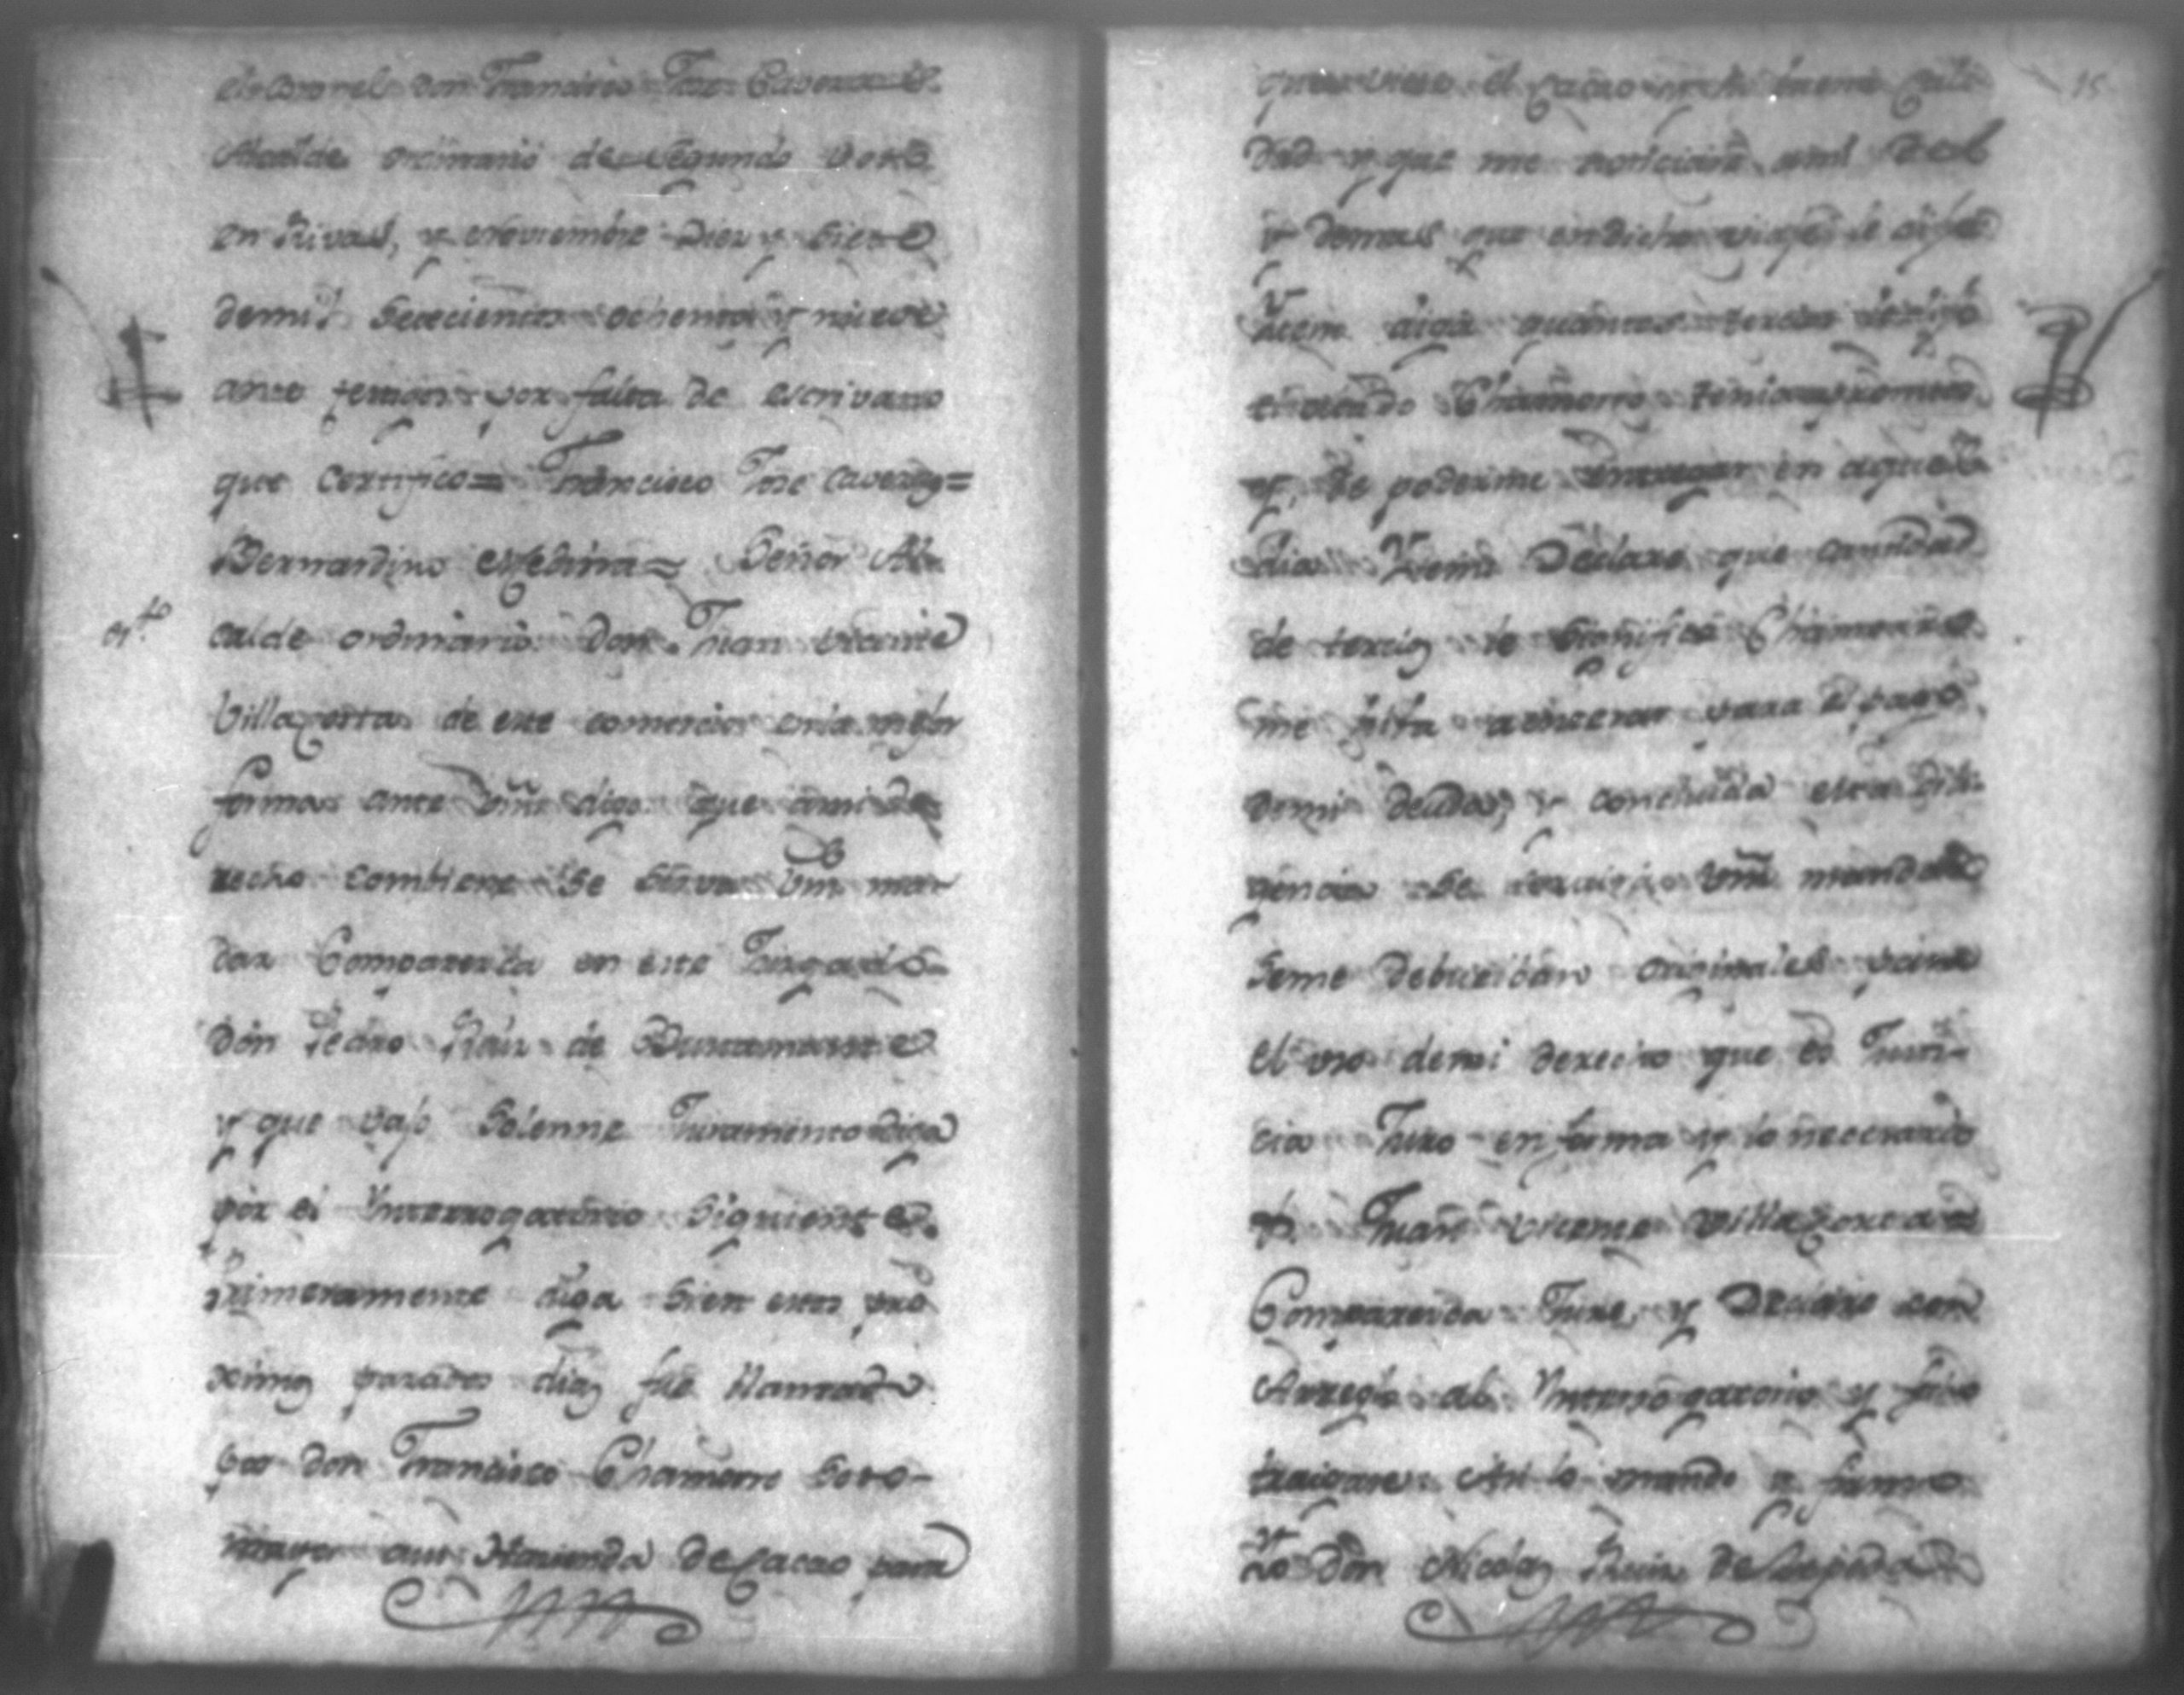 el Coronel don Francisco Jose Cavero
Alcalde ordinario de segundo voto
en Rivas, y noviembre Diez y siete
demil setecientos ochenta y nueve
ante testigos por falta de escrivano
que Certifico = Francisco Jose Cavero =
Bernardino Medina = Señor Al-
calde ordinario Don Juan Vicente
Villaçorta de este comercio enla mejor
forma ante Vm̃ digo que ami de-
recho combiene se sirva Vm̃ man-
dar Comparesca en este Jusgado
Don Pedro Ruiz de Bustamante
y que vajo solenne Juramento diga
por el Ynterrogatorio Siguiente.
Primeramente diga si en estos pro
ximos pasados dias fue llamado
por don Francisco Chamorro Soto-
mayor asu Hacienda de Cacao para
15
que viese el Cacao
dad y que me noticiara
y demas que endicho viaje le dijo
Ytem diga quantos tercios
el citado Chamorro
de poderme entregar en aquel
dia Ytem Declare que cantidad
de tercios le significo Chamorro
me hiba a entregar para el pago
demi deudas, y concluida esta dili-
gencia se servira Vm̃ mandar
seme debuelban originales para
el uso demi derecho que es Justi-
cia Juro en forma y lo necesario
Juan Vicente Villaçorta =
Comparesca Jure, y Declare con
Arreglo al Ynterrogatorio y fho
traigase Asi lo mando y firmo
Yo don Nicolas Ruiz de